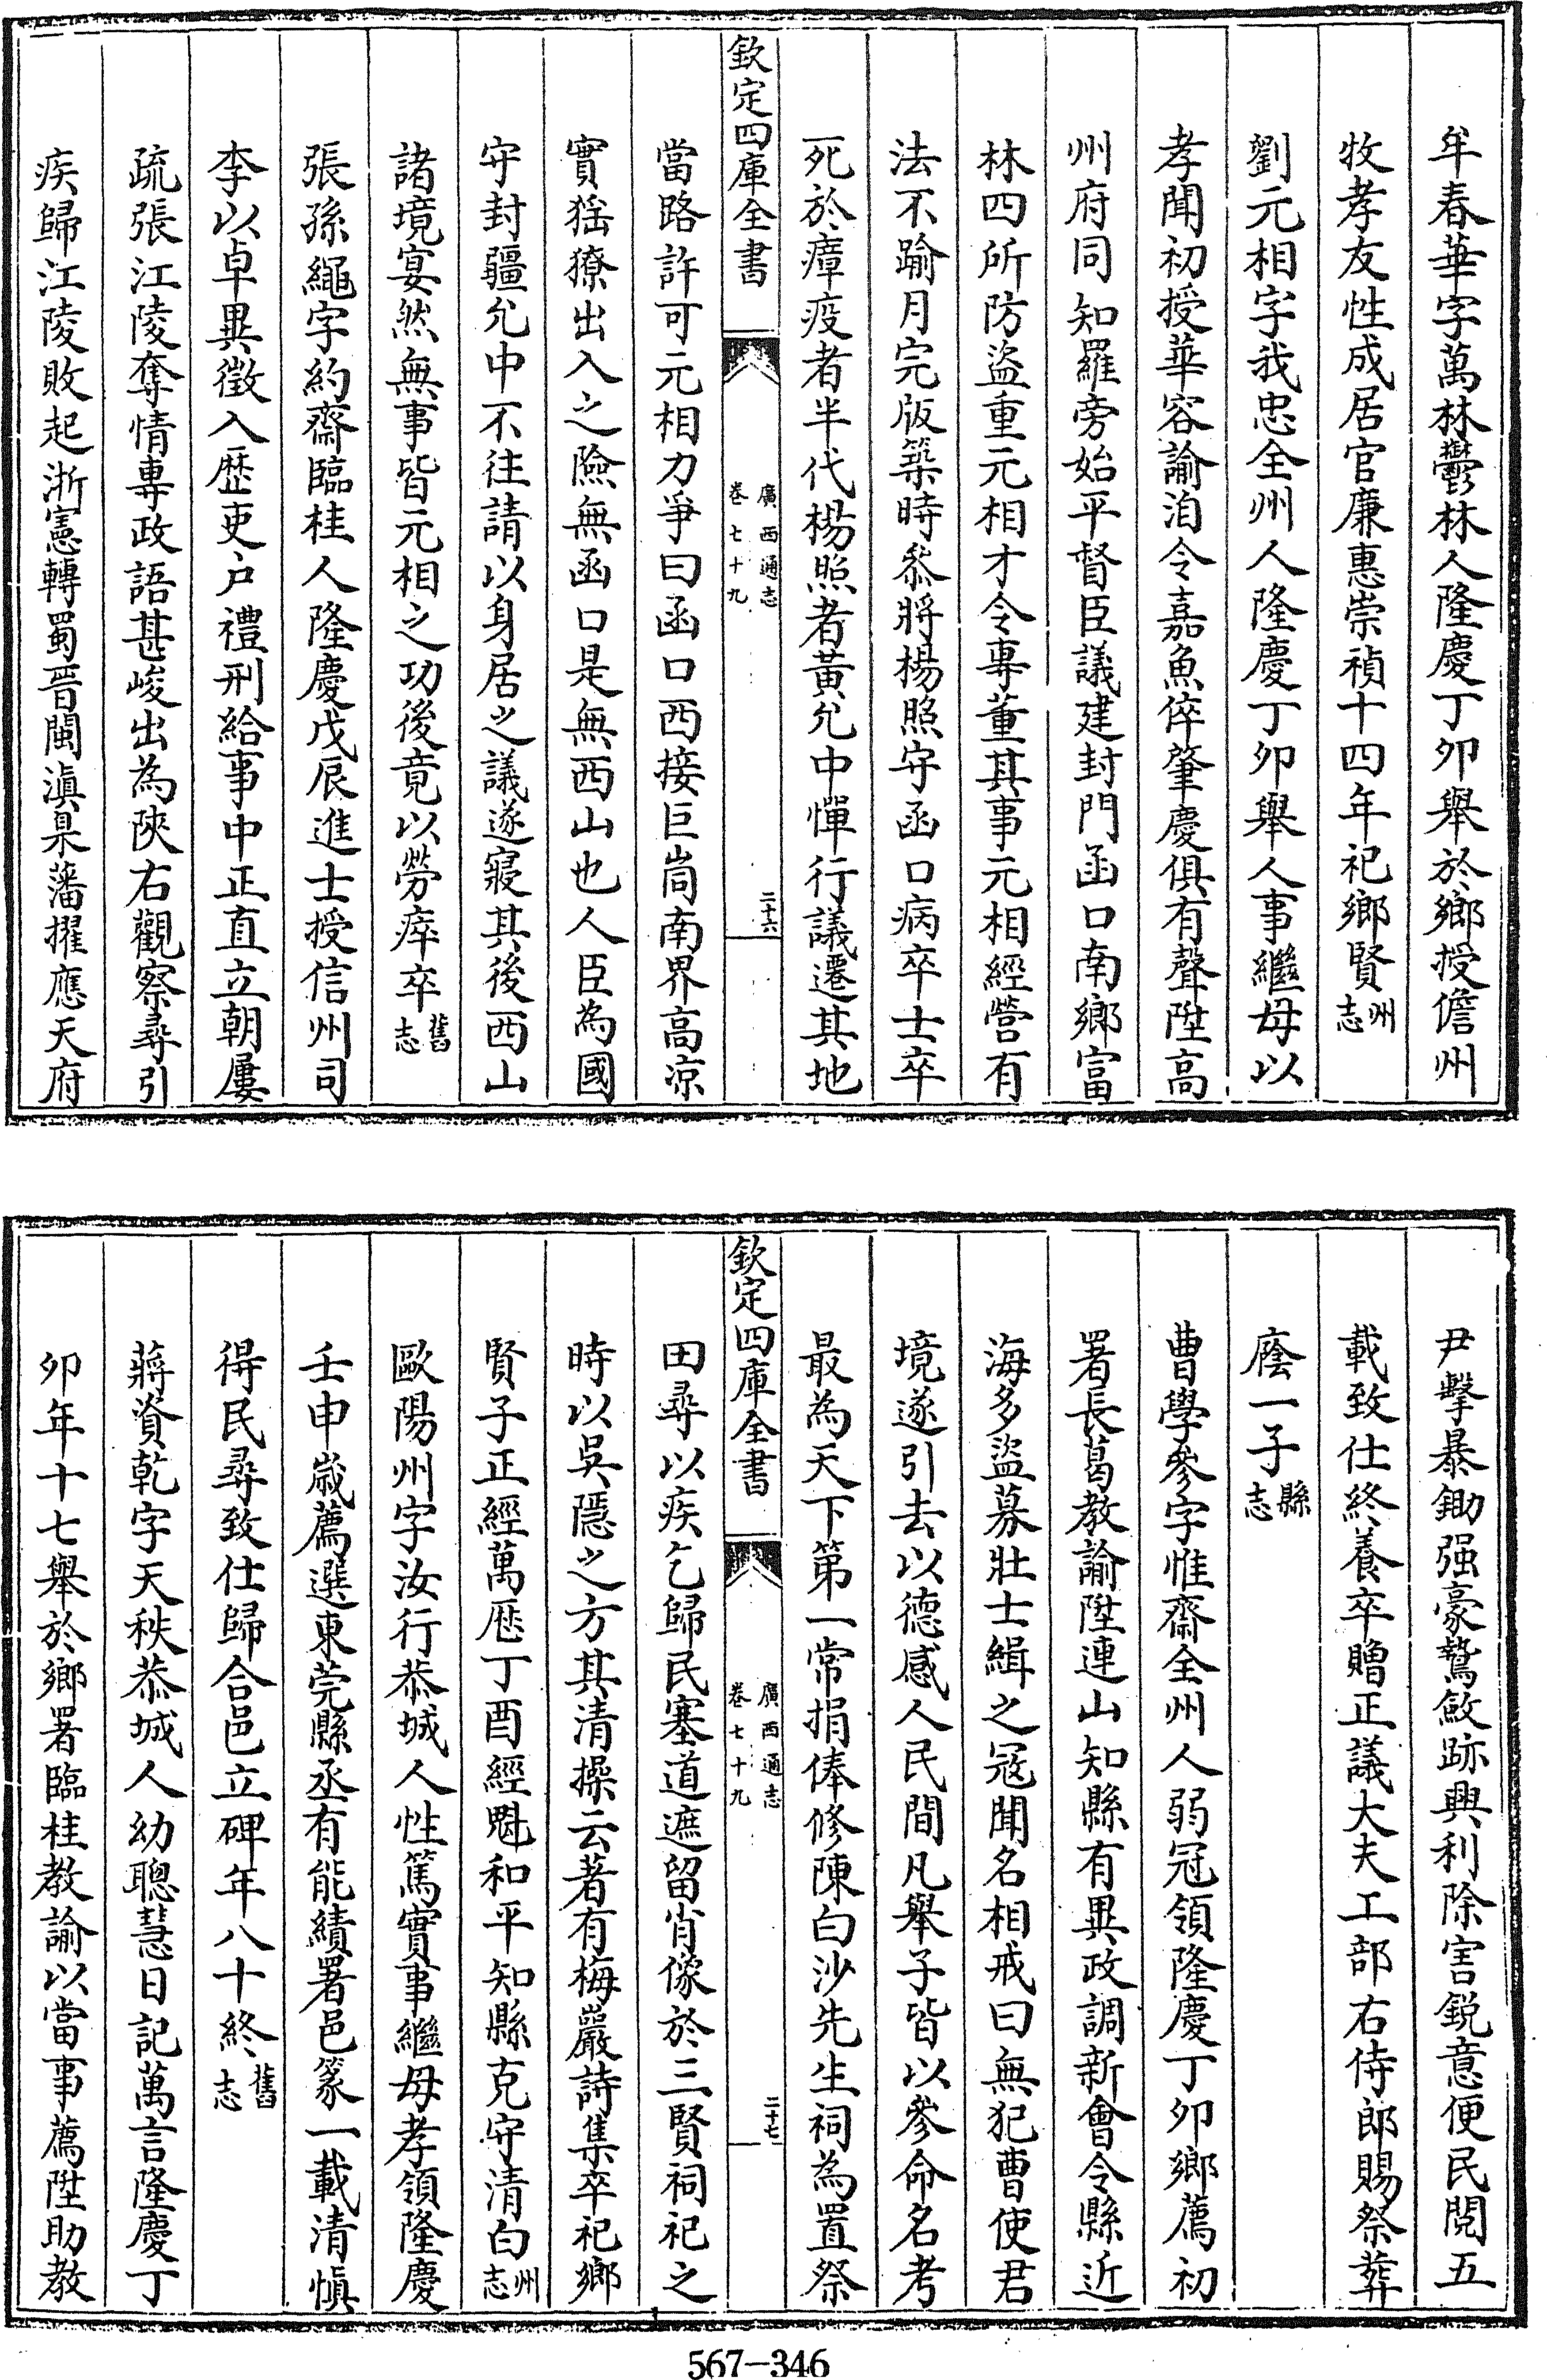 牟春華字萬林鬱林人隆慶丁卯舉於鄉授儋州
牧孝友性成居官廉惠崇禎十四年祀鄉賢州志
劉元相字我忠全州人隆慶丁卯舉人事繼母以
孝聞初授華容諭洎令嘉魚倅肇慶俱有聲陞高
州府同知羅旁始平督臣議建封門函口南鄉富
林四所防盜重元相才令專董其事元相經營有
法不踰月完版築時叅將楊照守函口病卒士卒
死於瘴疫者半代楊照者黃允中憚行議遷其地
欽定四庫全書
廣西通志
卷七十九
二十六
當路許可元相力爭曰函口西接巨峝南界高凉
實猺獠出入之險無函口是無西山也人臣為國
守封疆允中不往請以身居之議遂寢其後西山
諸境宴然無事皆元相之功後竟以勞瘁卒舊志
張孫繩字約齋臨桂人隆慶戊辰進士授信州司
李以卓異徵入歴吏户禮刑給事中正直立朝屢
疏張江陵奪情專政語甚峻出為陜右觀察尋引
疾歸江陵敗起浙憲轉蜀晉閩滇臬藩擢應天府
尹擊暴鋤强豪鷙斂跡興利除害銳意便民閱五
載致仕終養卒贈正議大夫工部右侍郎賜祭葬
廕一子縣志
曹學參字惟齋全州人弱冠領隆慶丁卯鄉薦初
署長葛教諭陞連山知縣有異政調新會令縣近
海多盜募壯士緝之冦聞名相戒曰無犯曹使君
境遂引去以德感人民間凡舉子皆以參命名考
最為天下第一常捐俸修陳白沙先生祠為置祭
欽定四庫全書
廣西通志
卷七十九
二十七
田尋以疾乞歸民塞道遮留肖像於三賢祠祀之
時以吳隱之方其清操云著有梅巖詩集卒祀鄉
賢子正經萬厯丁酉經魁和平知縣克守清白州志
歐陽州字汝行恭城人性篤實事繼母孝領隆慶
壬申嵗薦選東莞縣丞有能績署邑篆一載清慎
得民尋致仕歸合邑立碑年八十終舊志
蔣資乾字天秩恭城人幼聰慧日記萬言隆慶丁
卯年十七舉於鄉署臨桂教諭以當事薦陞助教
567-346